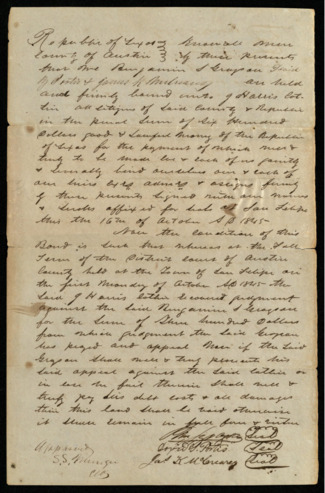 Republic of Texas } Know all men
County of Austin } by these presents
that We Benjamin S Grayson David
Y Portis & James K McCreary are held
and firmly bound unto J Harris
all citizens of said County & Republic
in the penal Sum of Six Hundred
Dollars good & Lawful Money of the Republic
of Texas for the payment of which well &
truly to be made we & each of us jointly
& severally bind ourselves our & each of
our heirs exrs admrs & assigns firmly
by these presents signed with our names
& Seals affixed for seals at San Felipe
this the 16th of October AD 1845
Now the condition of this
Bond is such that whereas at the Fall
Term of the District Court of Austin
County held at the Town of San Felipe on
the first Monday of October AD 1845 the
said J Harris recovered judgment
against the said Benjamin S Grayson
for the sum of Three hundred Dollars
from which judgment the said Grayson
has prayed and appeal Now if the said
Grayson shall well & truly prosecute his
said appeal against the said or
in case he fail therein shall well &
truly pay cost & all damages
then this bond shall be void otherwise
it shall remain in full force & virtue
Seal
Approved David Y Portis Seal
S.S. Munger Jas K McCreary Seal
Clk